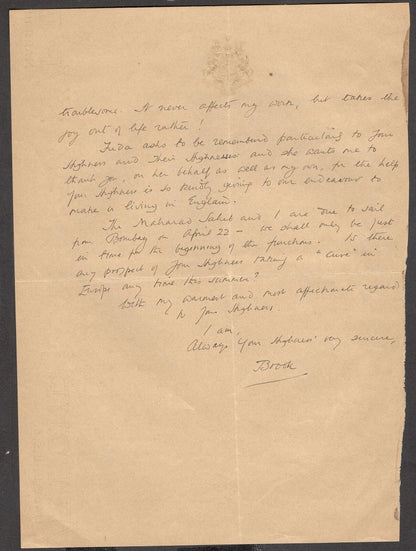 troublesome. It never affects my work, but takes the
joy out of life rather!
asks to be remembered particularly to Your
Highness and Their Highnesses and she wants me to
thank you, on her behalf as well as my own, for the help
Your Highness is so kindly giving to our endeavour to
make a living in England.
The Maharao Sahib and I are due to sail
from Bombay on April 22 – we shall only be just
in time for the beginning of the functions. Is there
any prospect of Your Highness taking a "cure" in
Europe any time this summer?
With my warmest and most affectionate regard
to Your Highness.
I am,
Always Your Highness' very sincere,
Brook